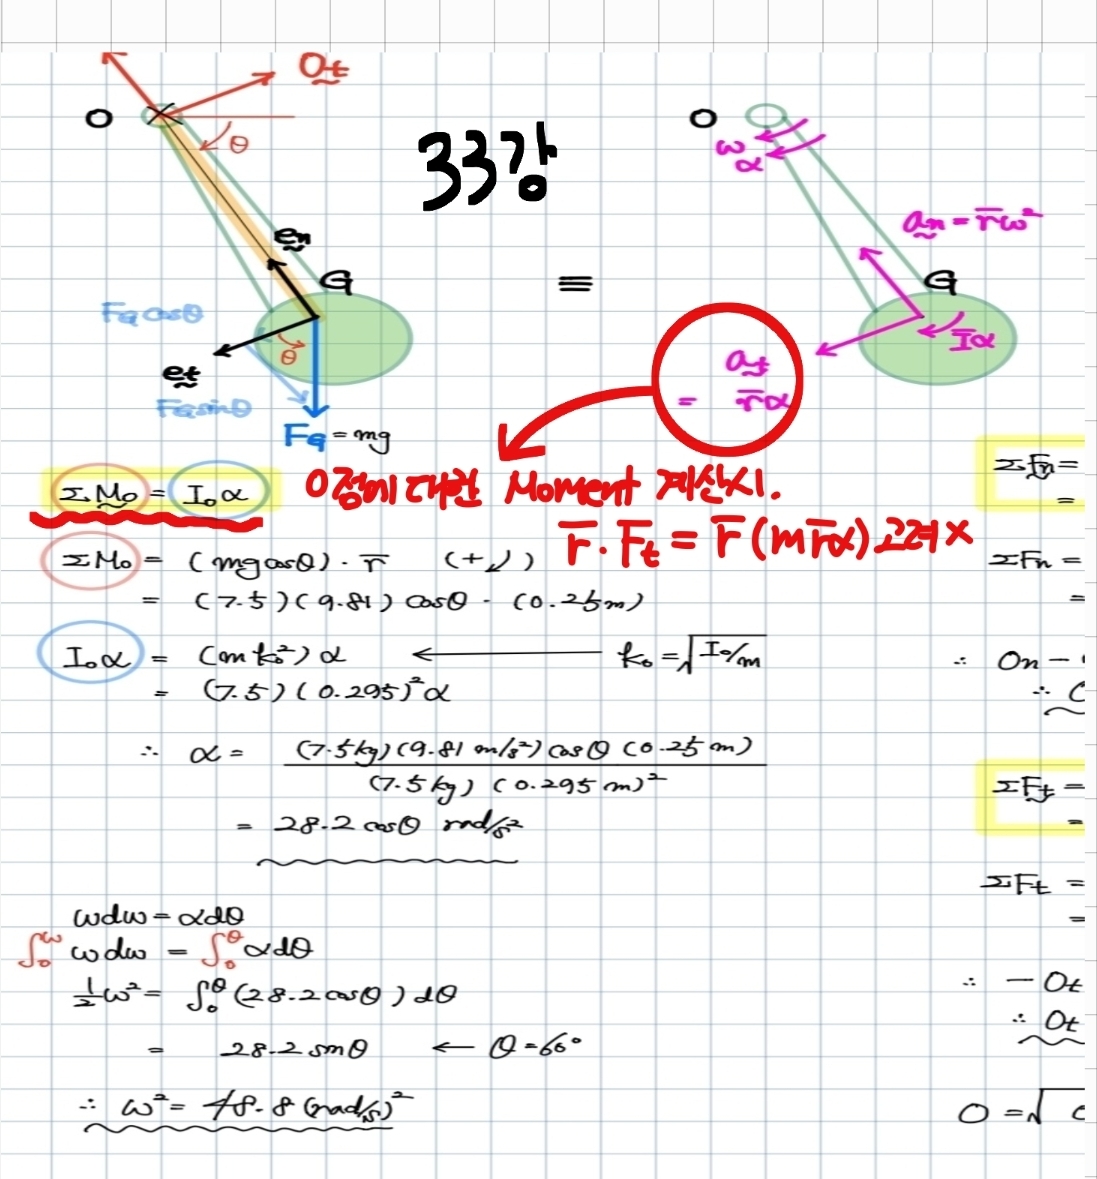 O_t
O
θ
33강
O
ω
α
e_n
a_n = r̄ω²
G
≡
G
F_G cosθ
Īα
θ
a_t
= r̄α
e_t
F_G sinθ
F_G = mg
ΣM₀ = I₀α
O점에 대한 Moment 계산시.
r̄ · F̄_t = r̄(mr̄α) 고려 ×
ΣF_n =
=
ΣM₀ = (mg cosθ) · r̄ (+↲)
= (7.5)(9.81) cosθ · (0.25m)
ΣF_n =
=
I₀α = (m k₀²)α ← k₀ = √I₀/m
= (7.5)(0.295)²α
∴ O_n −
∴
∴ α = (7.5kg)(9.81 m/s²) cosθ (0.25m)
(7.5kg) (0.295m)²
= 28.2 cosθ rad/s²
ΣF_t =
=
ΣF_t =
=
ωdω = αdθ
∫₀^ω ωdω = ∫₀^θ αdθ
½ω² = ∫₀^θ (28.2 cosθ) dθ
= 28.2 sinθ ← θ = 60°
∴ ω² = 48.8 (rad/s)²
∴ − O_t
∴ O_t
O = √